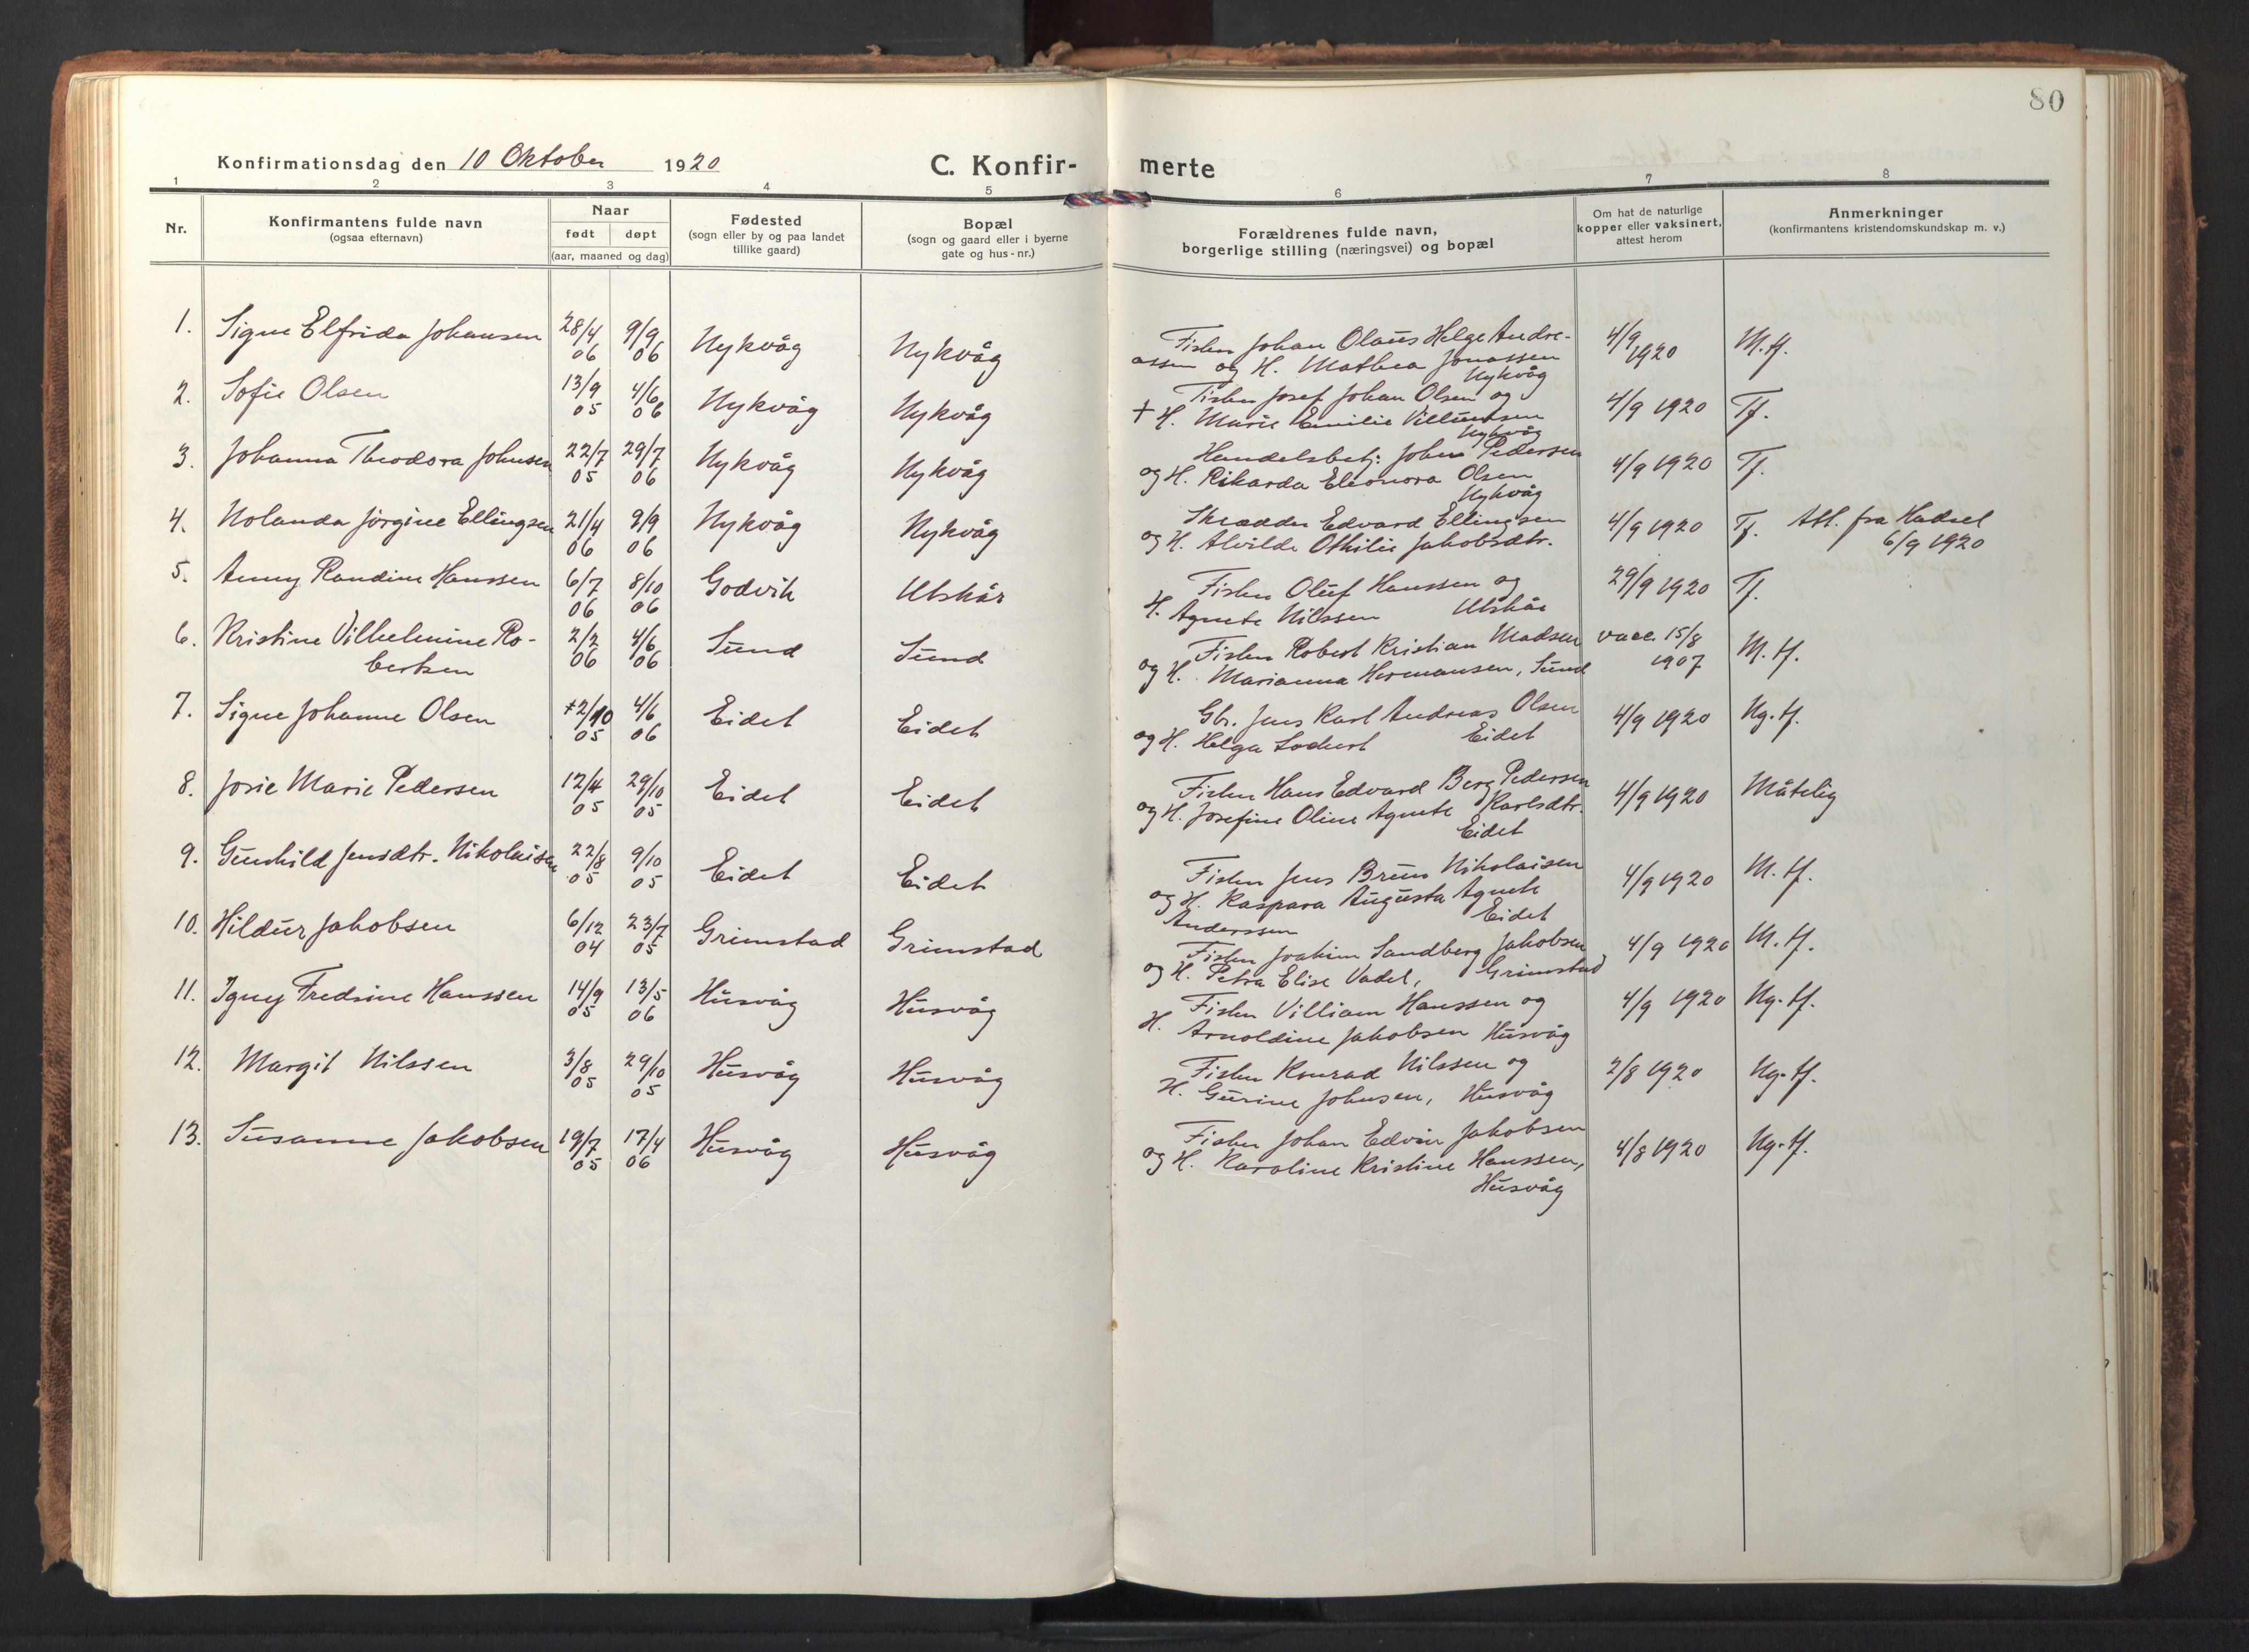 80
Konfirmationsdag den 10 Oktober 1920
C. Konfir-merte
1 2 3 4 5 6 7 8
Nr.
Konfirmantens fulde navn
(ogsaa efternavn)
Naar
født døpt
(aar, maaned og dag)
Fødested
(sogn eller by og paa landet
tillike gaard)
Bopæl
(sogn og gaard eller i byerne
gate og hus-nr.)
Forældrenes fulde navn,
borgerlige stilling (næringsvei) og bopæl
Om hat de naturlige
kopper eller vaksinert,
attest herom
Anmerkninger
(konfirmantens kristendomskundskap m. v.)
1. Signe Elfrida Johansen 28/4 06 9/9 06 Nykvåg Nykvåg
Fisker Johan Olaus Helge Andre-
assen og H. Mathea Jonassen
Nykvåg
4/9 1920 M.tf.
2. Sofie Olsen 13/9 05 4/6 06 Nykvåg Nykvåg
Fisker Josef Johan Olsen og
+ H. Marie Emilie Villumsen
Nykvåg
4/9 1920 Tf.
3. Johanna Theodora Johnsen 22/7 05 29/7 06 Nykvåg Nykvåg
Handelsbetj: Johan Pedersen
og H. Rikarda Eleonora Olsen
Nykvåg
4/9 1920 Tf.
4. Nolanda Jørgine Ellingsen 21/4 06 9/9 06 Nykvåg Nykvåg
Skrædder Edvard Ellingsen
og H. Alvilde Othilie Jakobsdtr.
4/9 1920 Tf. Att. fra Hadsel
6/9 1920
5. Anny Randine Hanssen 6/7 06 8/10 06 Godvik Utskår
Fisker Oluf Hanssen og
H. Agnete Nilssen Utskår
29/9 1920 Tf.
6. Kristine Vilhelmine Ro-
bertsen 2/2 06 4/6 06 Sund Sund
Fisker Robert Kristian Madsen
og H. Marianna Hermansen, Sund
vacc. 15/8
1907 M.tf.
7. Signe Johanne Olsen 2/10 05 4/6 06 Eidet Eidet
Gbr. Jens Karl Andreas Olsen
og H. Helga Lockert Eidet
4/9 1920 Ng.tf.
8. Josie Marie Pedersen 12/4 05 29/10 05 Eidet Eidet
Fisker Hans Edvard Berg Pedersen
og H. Josefine Oline Agnete Karlsdtr.
Eidet
4/9 1920 Måtelig
9. Gunhild Jensdtr. Nikolaisen 22/8 05 9/10 05 Eidet Eidet
Fisker Jens Bruun Nikolaisen
og H. Kaspara Augusta Agnete
Anderssen Eidet
4/9 1920 M.tf.
10. Hildur Jakobsen 6/12 04 23/7 05 Grimstad Grimstad
Fisker Joakim Sandberg Jakobsen
og H. Petra Elise Vadel, Grimstad
4/9 1920 M.tf.
11. Signy Fredrine Hanssen 14/9 05 13/5 06 Husvåg Husvåg
Fisker Villiam Hanssen og
H. Arnoldine Jakobsen Husvåg
4/9 1920 Ng.tf.
12. Margit Nilssen 3/8 05 29/10 05 Husvåg Husvåg
Fisker Konrad Nilssen og
H. Gurine Johnsen, Husvåg
2/8 1920 Ng.tf.
13. Susanne Jakobsen 19/7 05 17/4 06 Husvåg Husvåg
Fisker Johan Edvin Jakobsen
og H. Karoline Kristine Hanssen,
Husvåg
4/8 1920 Ng.tf.